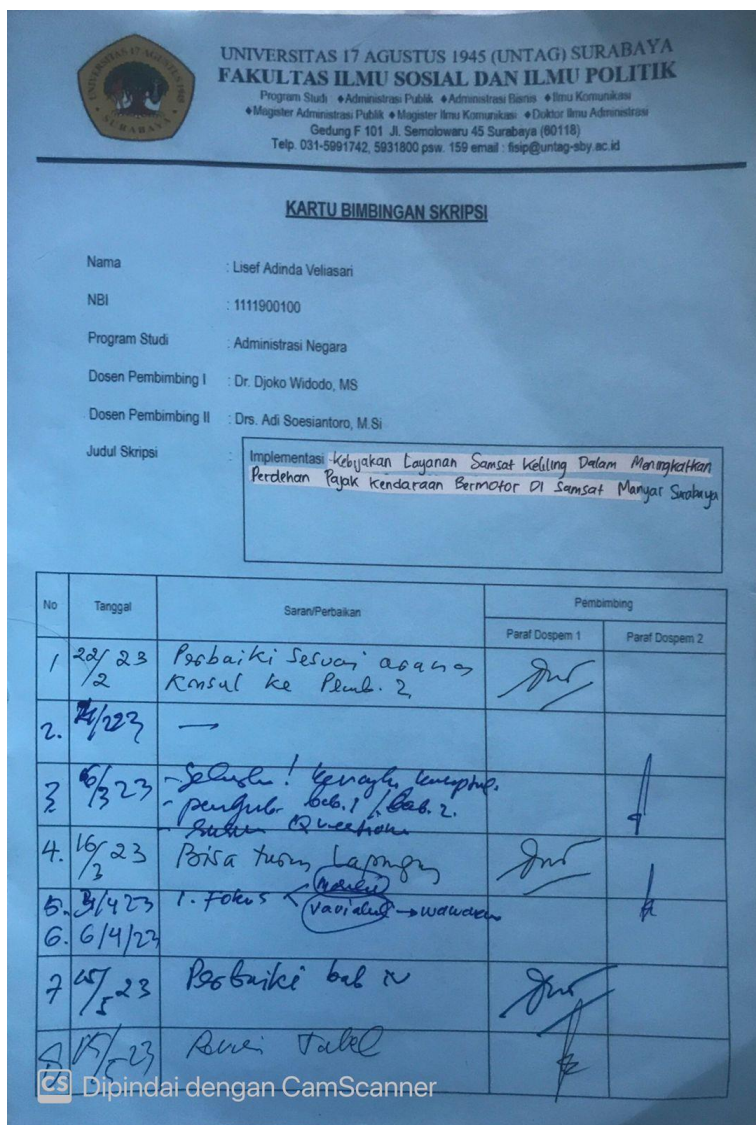 UNIVERSITAS 17 AGUSTUS 1945 (UNTAG) SURABAYA
FAKULTAS ILMU SOSIAL DAN ILMU POLITIK
Program Studi : ◆Administrasi Publik ◆Administrasi Bisnis ◆Ilmu Komunikasi
◆Magister Administrasi Publik ◆ Magister Ilmu Komunikasi ◆Doktor Ilmu Administrasi
Gedung F 101 Jl. Semolowaru 45 Surabaya (60118)
Telp. 031-5991742, 5931800 psw. 159 email : fisip@untag-sby.ac.id
UNIVERSITAS 17 AGUSTUS 1945
SURABAYA
KARTU BIMBINGAN SKRIPSI
Nama : Lisef Adinda Veliasari
NBI : 1111900100
Program Studi : Administrasi Negara
Dosen Pembimbing I : Dr. Djoko Widodo, MS
Dosen Pembimbing II : Drs. Adi Soesiantoro, M.Si
Judul Skripsi : Implementasi Kebijakan Layanan Samsat Keliling Dalam Meningkatkan
Perolehan Pajak Kendaraan Bermotor Di Samsat Manyar Surabaya
No Tanggal Saran/Perbaikan Pembimbing
Paraf Dospem 1 Paraf Dospem 2
1 22/2 23 Perbaiki sesuai
Konsul ke Pemb. 2
2. —
3 6/3 23
bab. 1 / bab. 2.
4. 16/3 23 Bisa turun Lapangan
5. /4 23 1. Fokus
6. 6/4/23
7 15/5 23 Perbaiki bab IV
8 15/5 23 Tabel
CS Dipindai dengan CamScanner